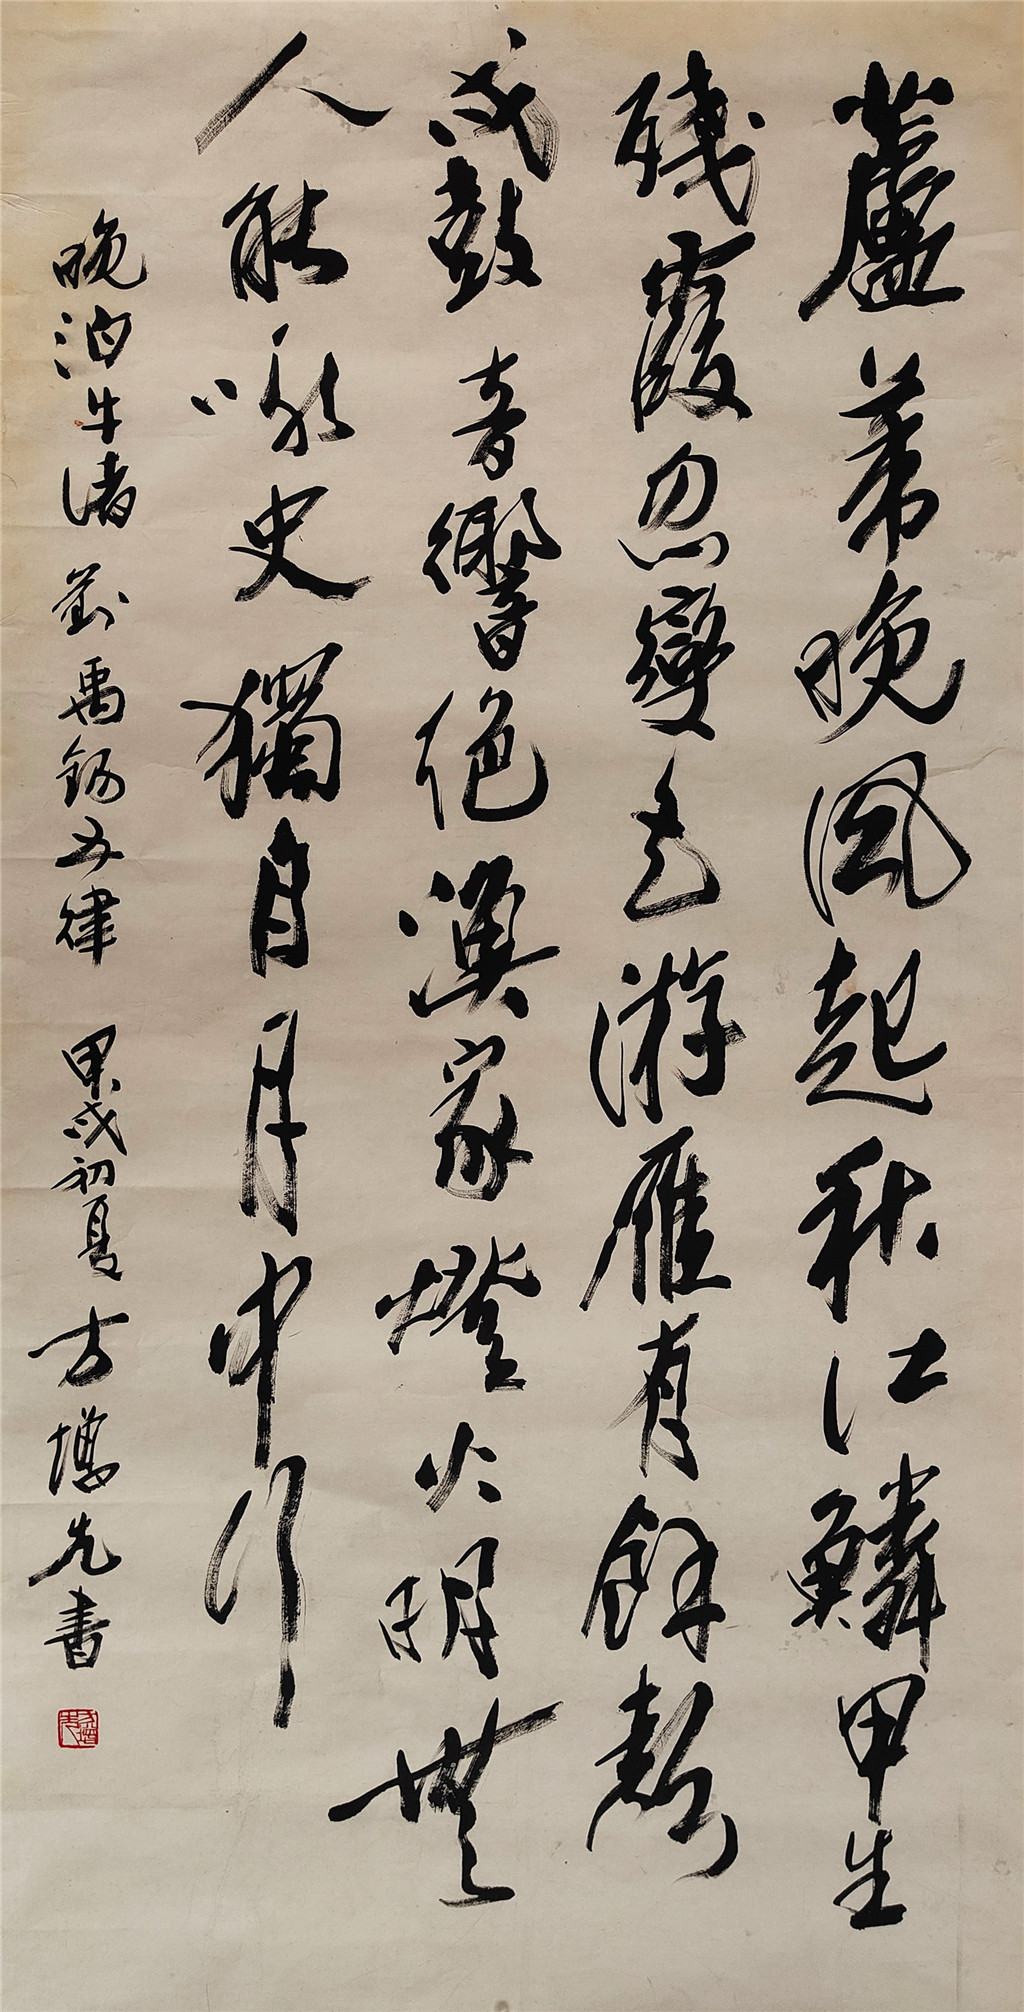 蘆葦晚風起秋江鱗甲生
殘霞忽變色游雁有餘聲
戍鼓音響絕漁家燈火明無
人能詠史獨自月中行
晚泊牛渚 劉禹錫五律 甲戌初夏 方增先書